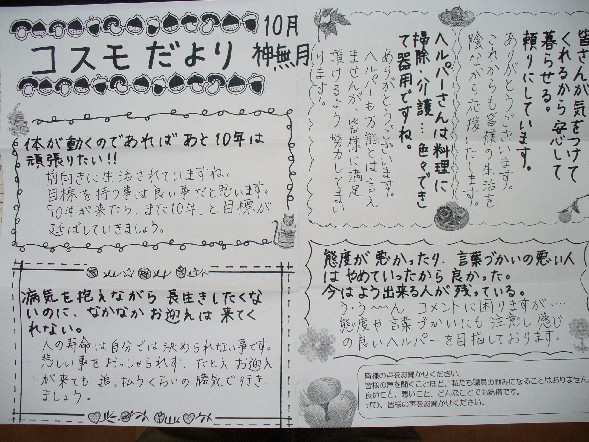 コスモだより
10月
神無月
体が動くのであれば あと10年は
頑張りたい!!
前向きに生活されていますね。
目標を持つ事は良い事だと思います。
10年が来たら、また10年、と目標が
延ばしていきましょう。
病気を抱えながら 長生きしたくない
のに、なかなかお迎えは来てく
れない。
人の寿命は自分では決められない事です。
悲しい事をおっしゃられず、たとえお迎え
が来ても 追っ払うくらいの勝気で行き
ましょう。
皆さんが気をつけて
くれるから安心して
暮らせる。
頼りにしています。
ありがとうございます。
これからも皆様の生活を
陰ながら応援いたします。
ヘルパーさんは料理に
掃除・介護…色々でき
て器用ですね。
ありがとうございます。
ヘルパーも万能とは言え
ませんが、皆様に満足
頂けるよう努力してまい
ります。
態度が悪かったり、言葉づかいの悪い人
はやめていったから良かった。
今はよう出来る人が残っている。
う、う〜ん、コメントに困りますが…
態度や言葉づかいにも注意し感じ
の良いヘルパーを目指しております。
皆様の声をお聞かせください。
皆様の声を聞くことほど、私たち職員の励みになることはありません。
良いこと、悪いこと、どんなことでも結構です。
皆様の声をお聞かせください。